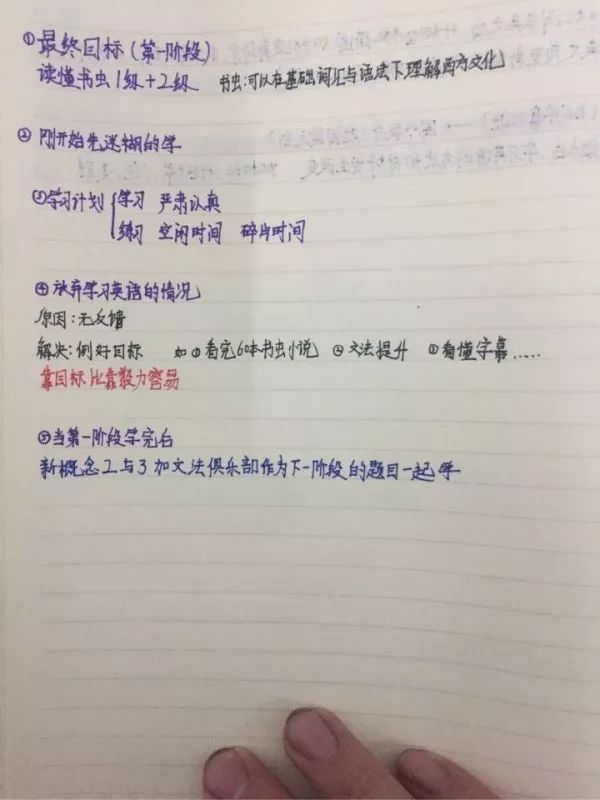 ①最终目标(第一阶段)
读懂书虫1级+2级 书虫:可以在基础词汇与语法下理解西方文化
②刚开始先迷糊的学
③学习计划{学习 严肃认真
练习 空闲时间 碎片时间
④放弃学习英语的情况
原因:无反馈
解决:例好目标 如①看完60本书虫小说 ②文法提升 ③看懂字幕.....
靠目标比靠毅力容易
⑤当第一阶段学完后
新概念2与3加文法俱乐部作为下一阶段的题目一起学